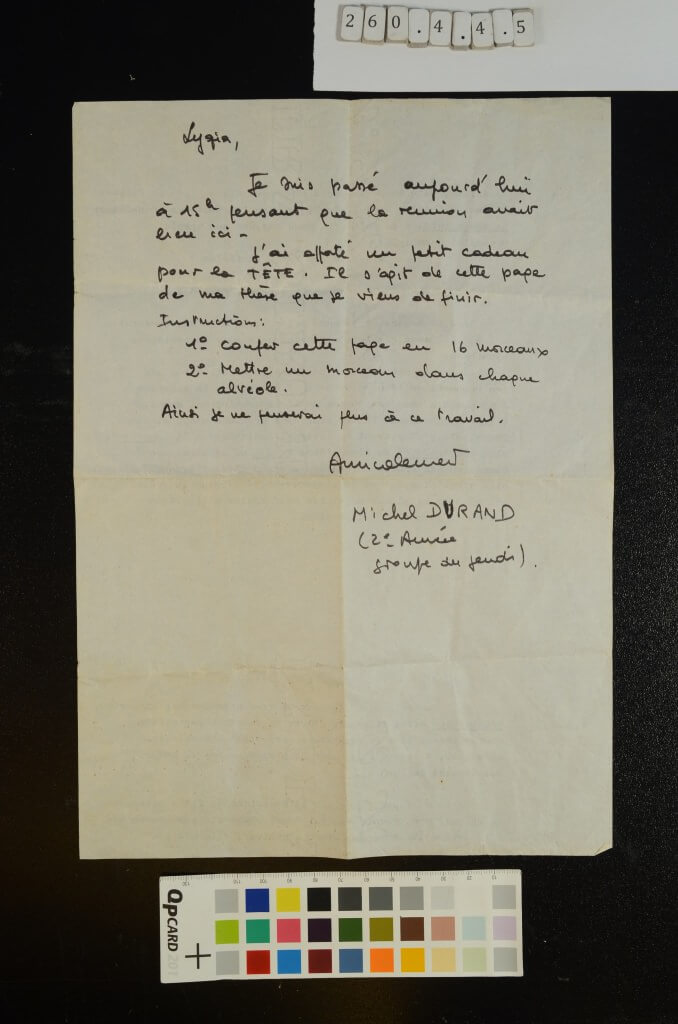 260.4.4.5
Lygia,
Je suis passé aujourd'hui
à 15h pensant que la reunion avait
lieu ici -
J'ai apporté un petit cadeau
pour la TÊTE. Il s'agit de cette page
de ma thèse que je viens de finir.
Instructions:
1º couper cette page en 16 morceaux
2º Mettre un morceau dans chaque
alvéole.
Ainsi je ne penserai plus à ce travail.
Amicalement
Michel DURAND
(2º Année
groupe du jeudi).
QPCARD 201